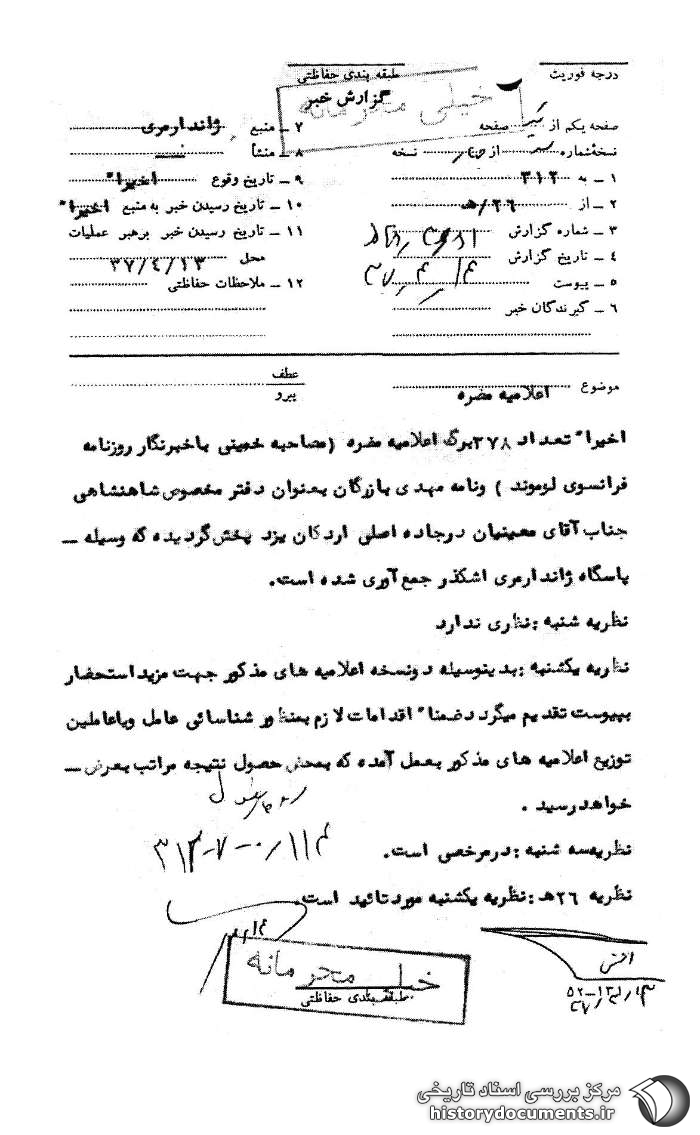 درجه فوریت
طبقه بندی حفاظتی
خیلی محرمانه
گزارش خبر
صفحه یکم از یک صفحه
نسخه شماره از چهار نسخه
۱ ــ به ۳۱۲
۲ ــ از ۲۶/هـ
۳ ــ شماره گزارش
۴ ــ تاریخ گزارش
۵ ــ پیوست
۶ ــ گیرندگان خبر
۷ ــ منبع ژاندارمری
۸ ــ منشأ
۹ ــ تاریخ وقوع اخیرا"
۱۰ ــ تاریخ رسیدن خبر به منبع اخیرا"
۱۱ ــ تاریخ رسیدن خبر برهبر عملیات
محل ۳۷/۴/۱۳
۱۲ ــ ملاحظات حفاظتی
موضوع اعلامیه مضره
عطف
پیرو
اخیرا" تعداد ۳۷۸ برگ اعلامیه مضره (مصاحبه خمینی باخبرنگار روزنامه
فرانسوی لوموند ) ونامه مهدی بازرگان بعنوان دفتر مخصوص شاهنشاهی
جناب آقای معینیان درجاده اصلی اردکان یزد پخش گردیده که وسیله ــ
پاسگاه ژاندارمری اشکذر جمع آوری شده است.
نظریه شنبه : نظری ندارد
نظریه یکشنبه : بدینوسیله دونسخه اعلامیه های مذکور جهت مزید استحضار
بپیوست تقدیم میگردد ضمنا" اقدامات لازم بمنظور شناسائی عامل ویاعاملین
توزیع اعلامیه های مذکور بعمل آمده که بمحض حصول نتیجه مراتب بعرض ــ
خواهد رسید .
نظریه سه شنبه : درمرخصی است.
نظریه ۲۶هـ : نظریه یکشنبه مورد تائید است.
خیلی محرمانه
طبقه بندی حفاظتی
مرکز بررسی اسناد تاریخی
historydocuments.ir